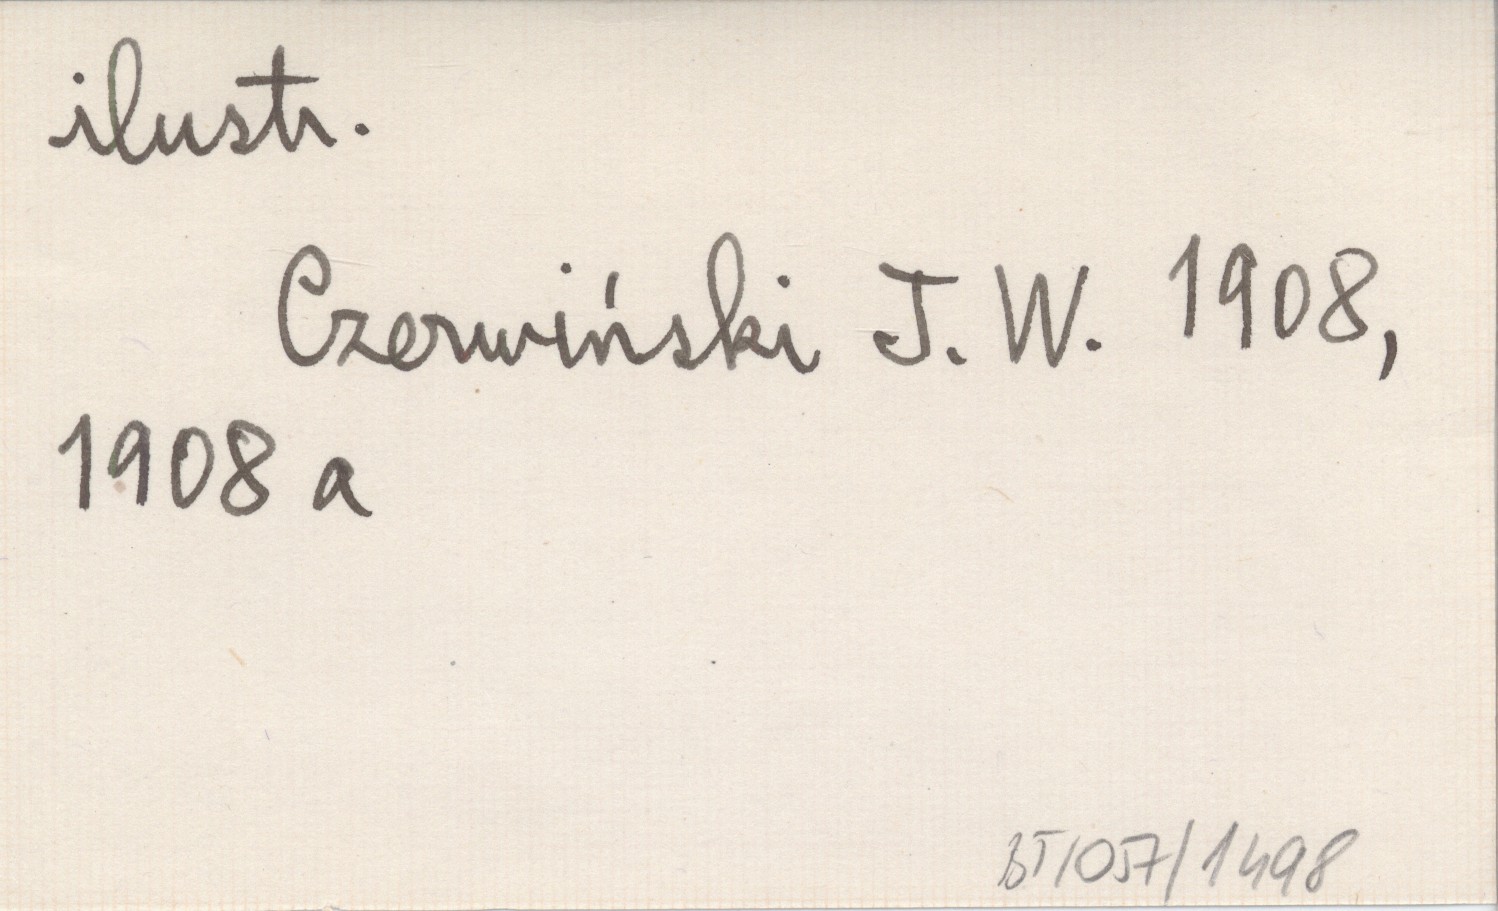 ilustr.
Czerwiński J. W. 1908,
1908 a
BT/057/1498